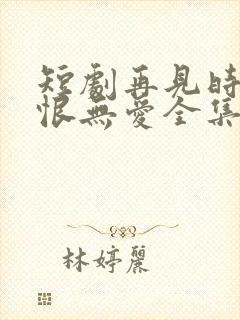 短劇再見時
恨無愛全集
林婷麗